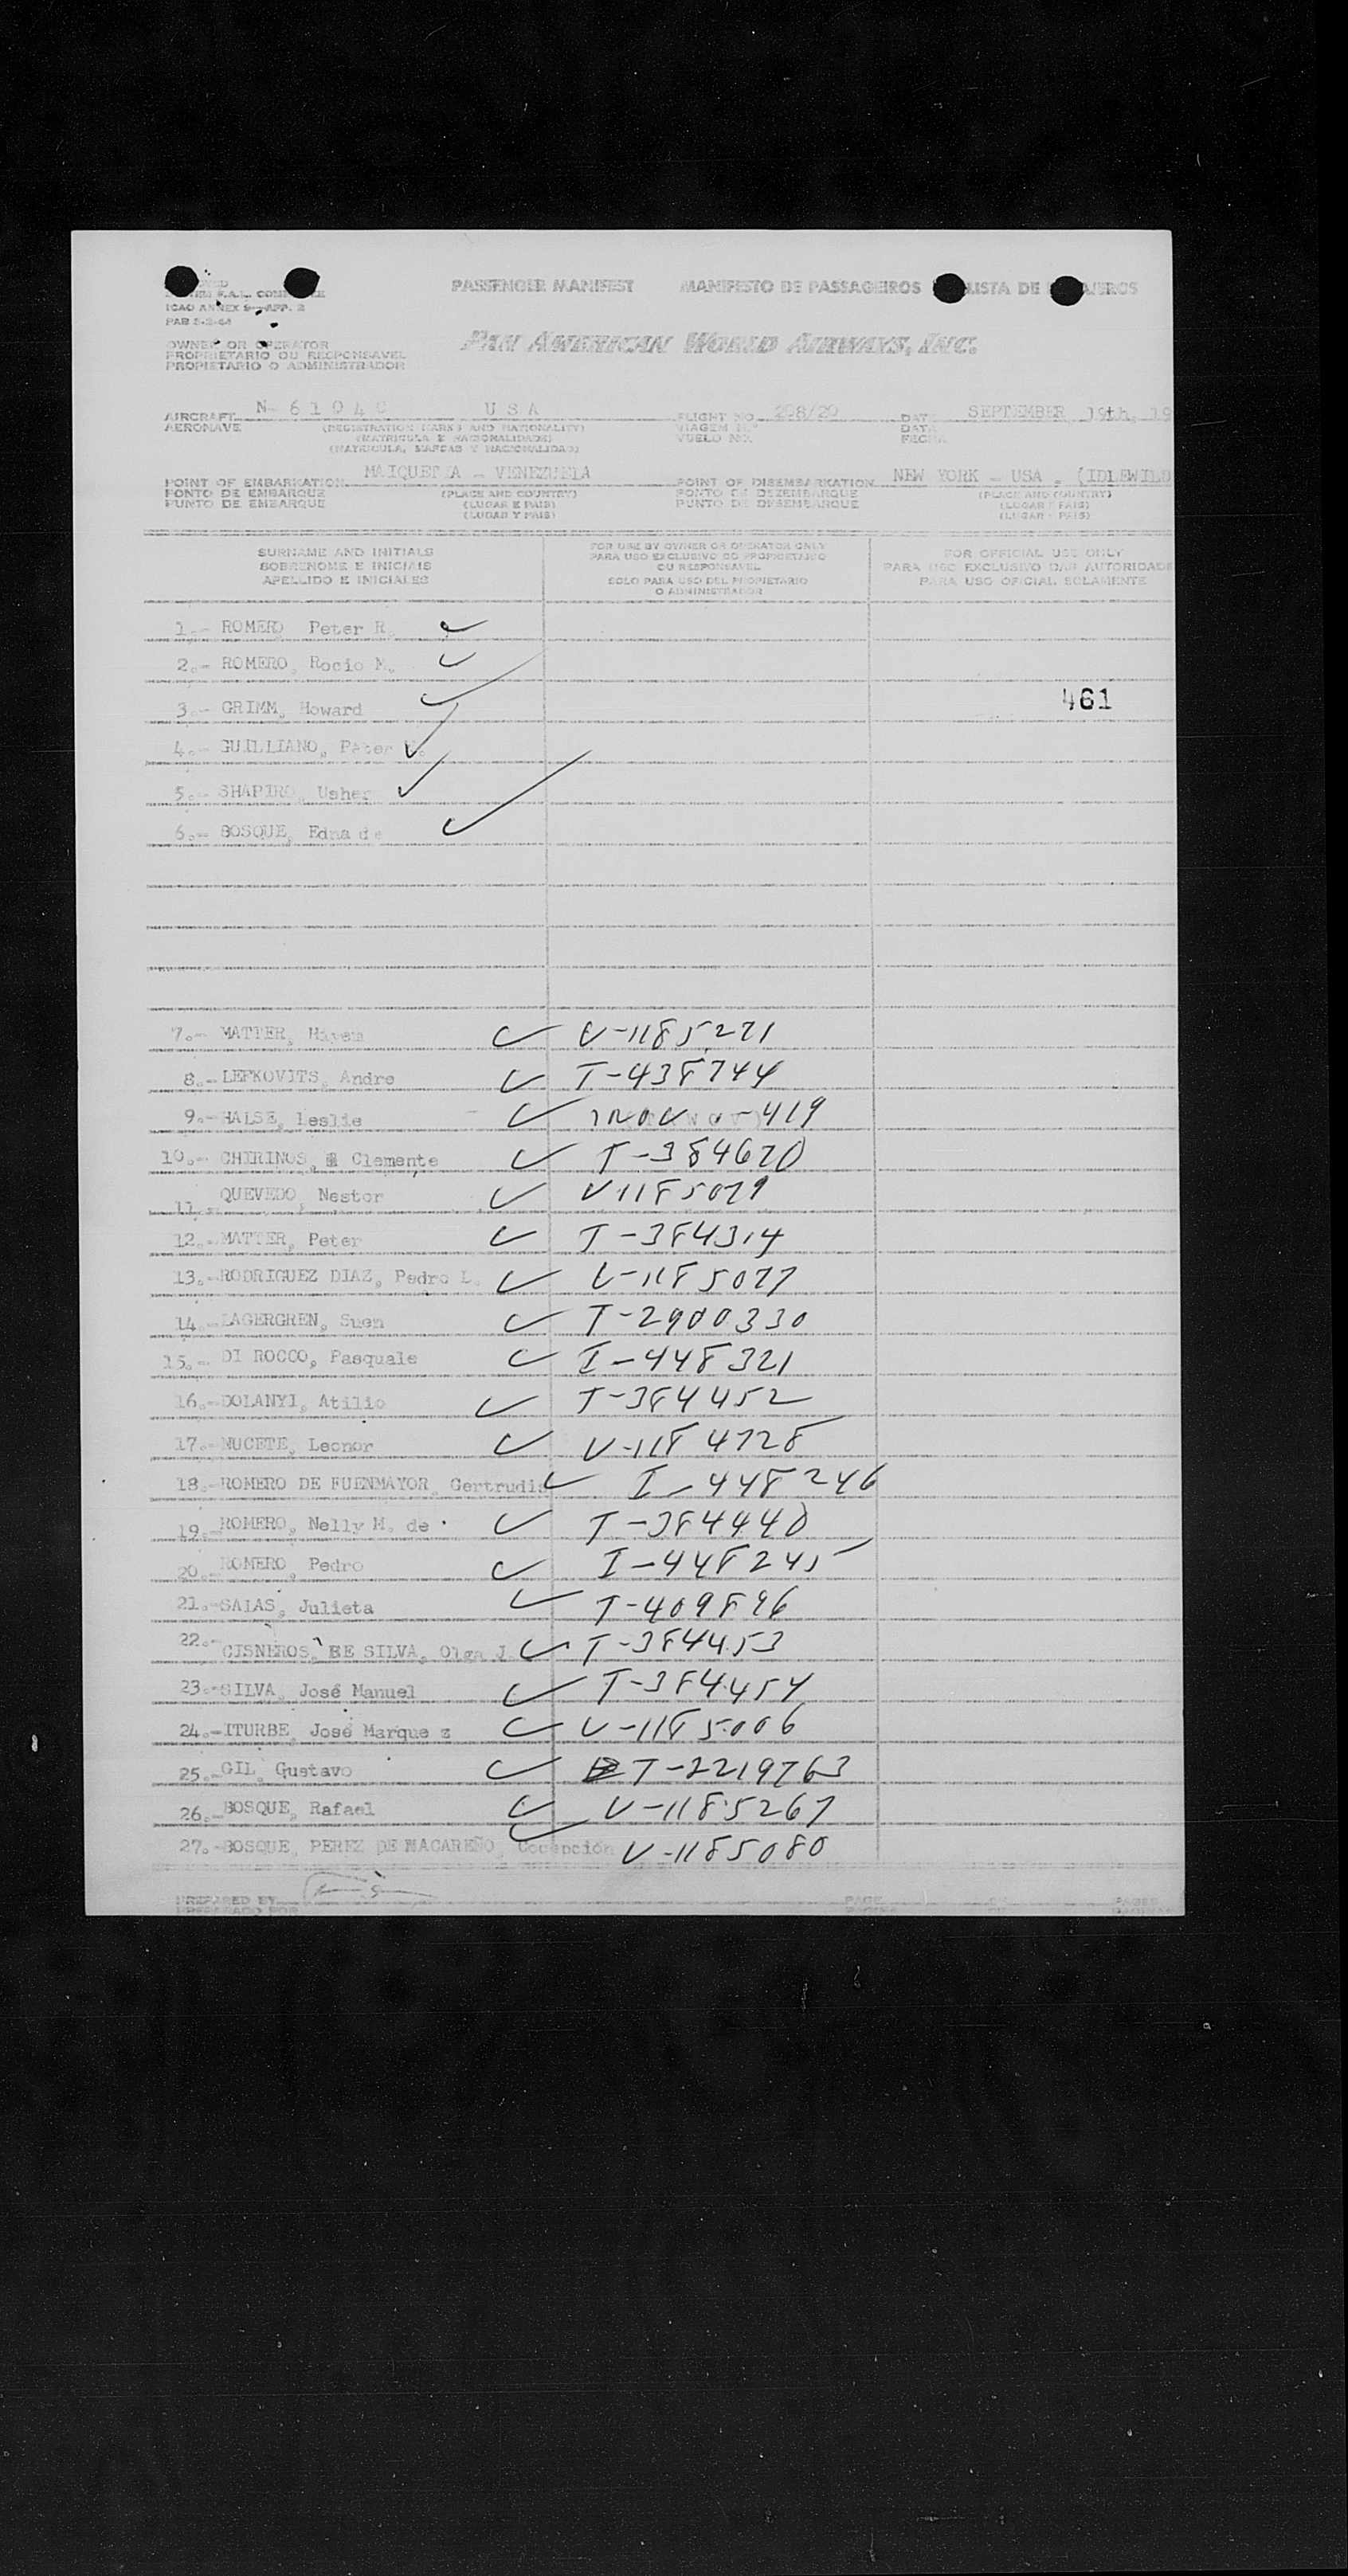 PASSENGER MANIFEST MANIFESTO DE PASSAGEIROS LISTA DE
ICAO ANNEX 9-APP. 2
PAB
OWNER OR OPERATOR
PROPRIETARIO OU RESPONSAVEL
PROPIETARIO O ADMINISTRADOR
PAN AMERICAN WORLD AIRWAYS, INC.
AIRCRAFT N- 6 1 0 4 0 U S A FLIGHT NO. 208/20 DATE SEPTEMBER 19th, 19
AERONAVE (REGISTRATION MARKS AND NATIONALITY) VIAGEM N.º DATA
(MATRICULA E NACIONALIDADE) VUELO NO. FECHA
(MATRICULA, MARCAS Y NACIONALIDAD)
POINT OF EMBARKATION MAIQUETIA - VENEZUELA POINT OF DISEMBARKATION NEW YORK - USA - (IDLEWILD
PONTO DE EMBARQUE (PLACE AND COUNTRY) PONTO DE DEZEMBARQUE (PLACE AND COUNTRY)
PUNTO DE EMBARQUE (LUGAR E PAIS) PUNTO DE DESEMBARQUE (LUGAR E PAIS)
(LUGAR Y PAIS) (LUGAR Y PAIS)
SURNAME AND INITIALS FOR USE BY OWNER OR OPERATOR ONLY FOR OFFICIAL USE ONLY
SOBRENOME E INICIAIS PARA USO EXCLUSIVO DO PROPRIETARIO OU RESPONSAVEL PARA USO EXCLUSIVO DAS AUTORIDADE
APELLIDO E INICIALES SOLO PARA USO DEL PROPIETARIO O ADMINISTRADOR PARA USO OFICIAL SOLAMENTE
1.- ROMERO Peter R.
2.- ROMERO, Rocio M.
3.- GRIMM, Howard 461
4.- GUILLIANO, Peter
5.- SHAPIRO, Usher
6.- BOSQUE, Edna de
7.- MATTER, Hayem V-1185271
8.- LEFKOVITS, Andre T-438744
9.- HALSE, Leslie -419
10.- CHIRINOS, Clemente T-384670
11.- QUEVEDO Nestor V1185079
12.- MATTER, Peter T-384314
13.- RODRIGUEZ DIAZ, Pedro L. V-1185077
14.- LAGERGREN, Suen T-2900330
15.- DI ROCCO, Pasquale I-448321
16.- DOLANYI, Atilio T-384452
17.- NUCETE, Leonor V-1184728
18.- ROMERO DE FUENMAYOR, Gertrudis I-448246
19.- ROMERO, Nelly M. de T-384440
20.- ROMERO, Pedro I-448245
21.- SALAS, Julieta T-409896
22.- CISNEROS, DE SILVA, Olga J. T-384453
23.- SILVA, José Manuel T-384454
24.- ITURBE, José Marque z V-1185006
25.- GIL, Gustavo T-2219763
26.- BOSQUE, Rafael V-1185267
27.- BOSQUE, PEREZ DE MACAREÑO, Concepción V-1185080
PREPARED BY PAGE OF PAGES
PREPARADO POR